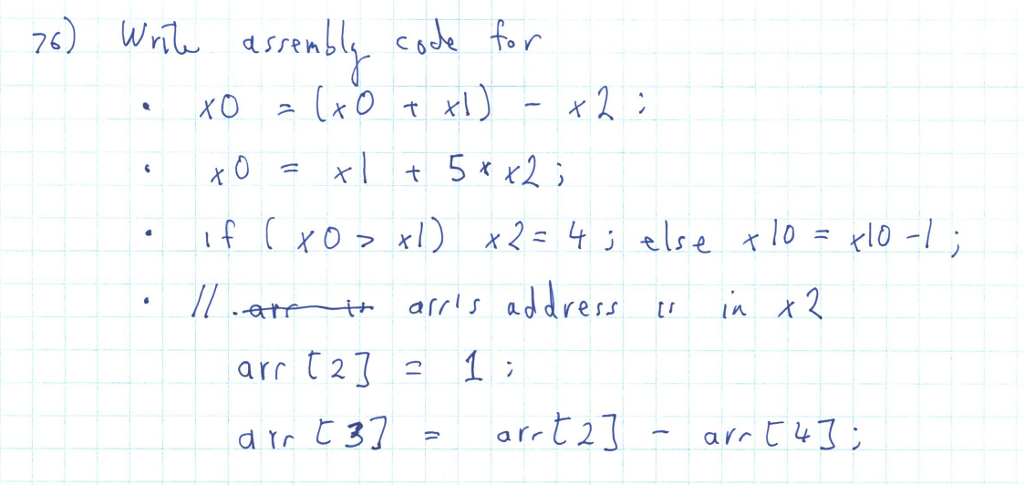 76) Write assembly code for
• x0 = (x0 + x1) - x2 ;
• x0 = x1 + 5 * x2 ;
• if ( x0 > x1) x2 = 4 ; else x10 = x10 - 1 ;
• // arr is arr's address is in x2
arr [2] = 1 ;
arr [3] = arr[2] - arr [4] ;